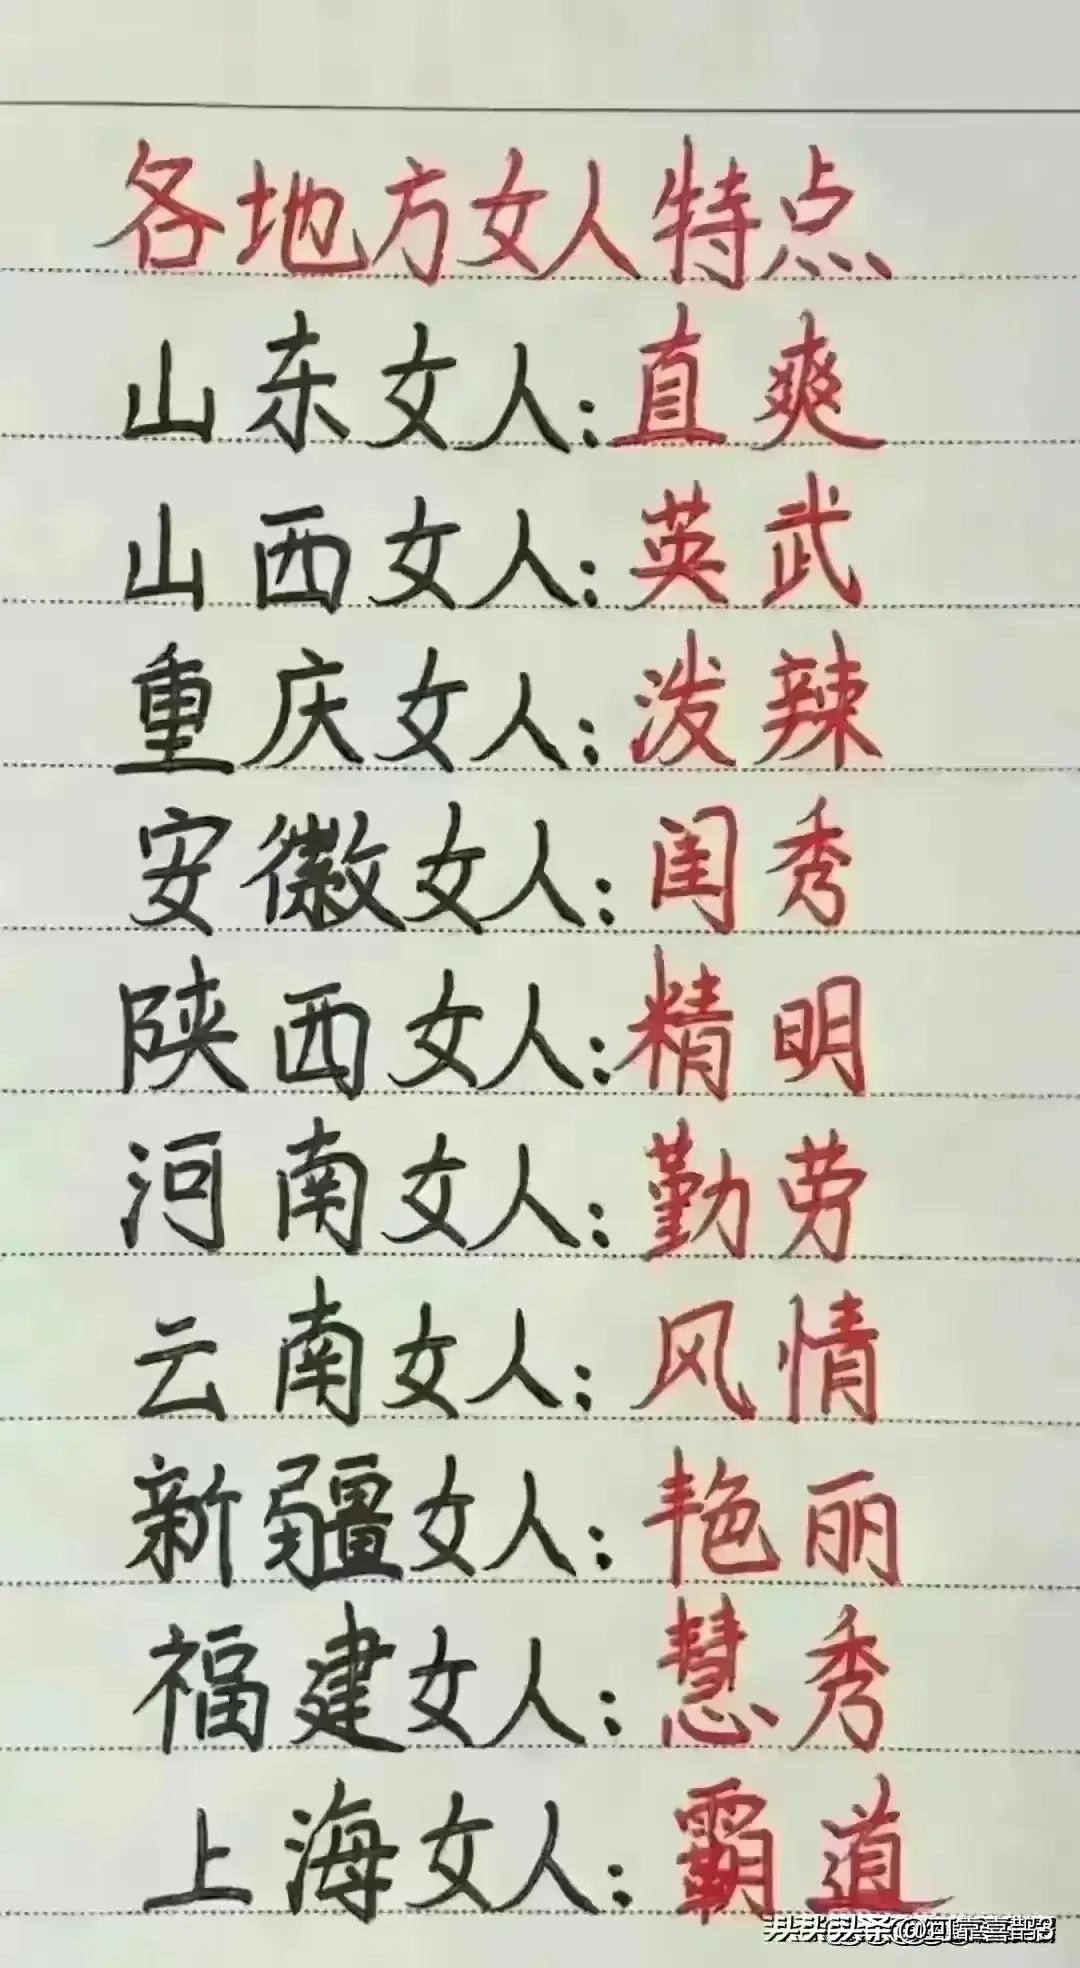 各地方女人特点
山东女人:直爽
山西女人:英武
重庆女人:泼辣
安徽女人:闺秀
陕西女人:精明
河南女人:勤劳
云南女人:风情
新疆女人:艳丽
福建女人:慧秀
上海女人:霸道